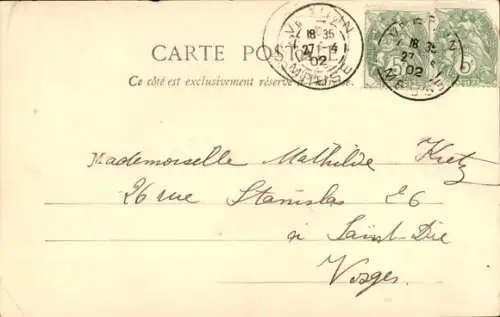 CARTE POSTALE
Ce côté est exclusivement réservé à l'adresse.
18 35
27 - 4
02
MEUSE
18 35
27
02
MEUSE
5
5
Mademoiselle Mathilde Kretz
26 rue Stanislas 26
à Saint-Dié
Vosges